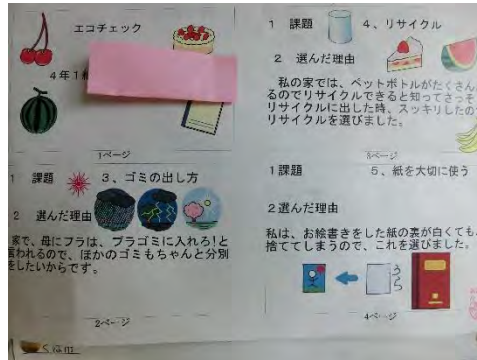 エコチェック
4年1組
1ページ
1 課題 3、ゴミの出し方
2 選んだ理由
家で、母にプラは、プラゴミに入れろ!と
言われるので、ほかのゴミもちゃんと分別
をしたいからです。
2ページ
1 課題 4、リサイクル
2 選んだ理由
私の家では、ペットボトルがたくさん
るのでリサイクルできると知ってさっそ
リサイクルに出した時、スッキリしたの
リサイクルを選びました。
3ページ
1課題 5、紙を大切に使う
2選んだ理由
私は、お絵書きをした紙の裏が白くても、
捨ててしまうので、これを選びました。
4ページ